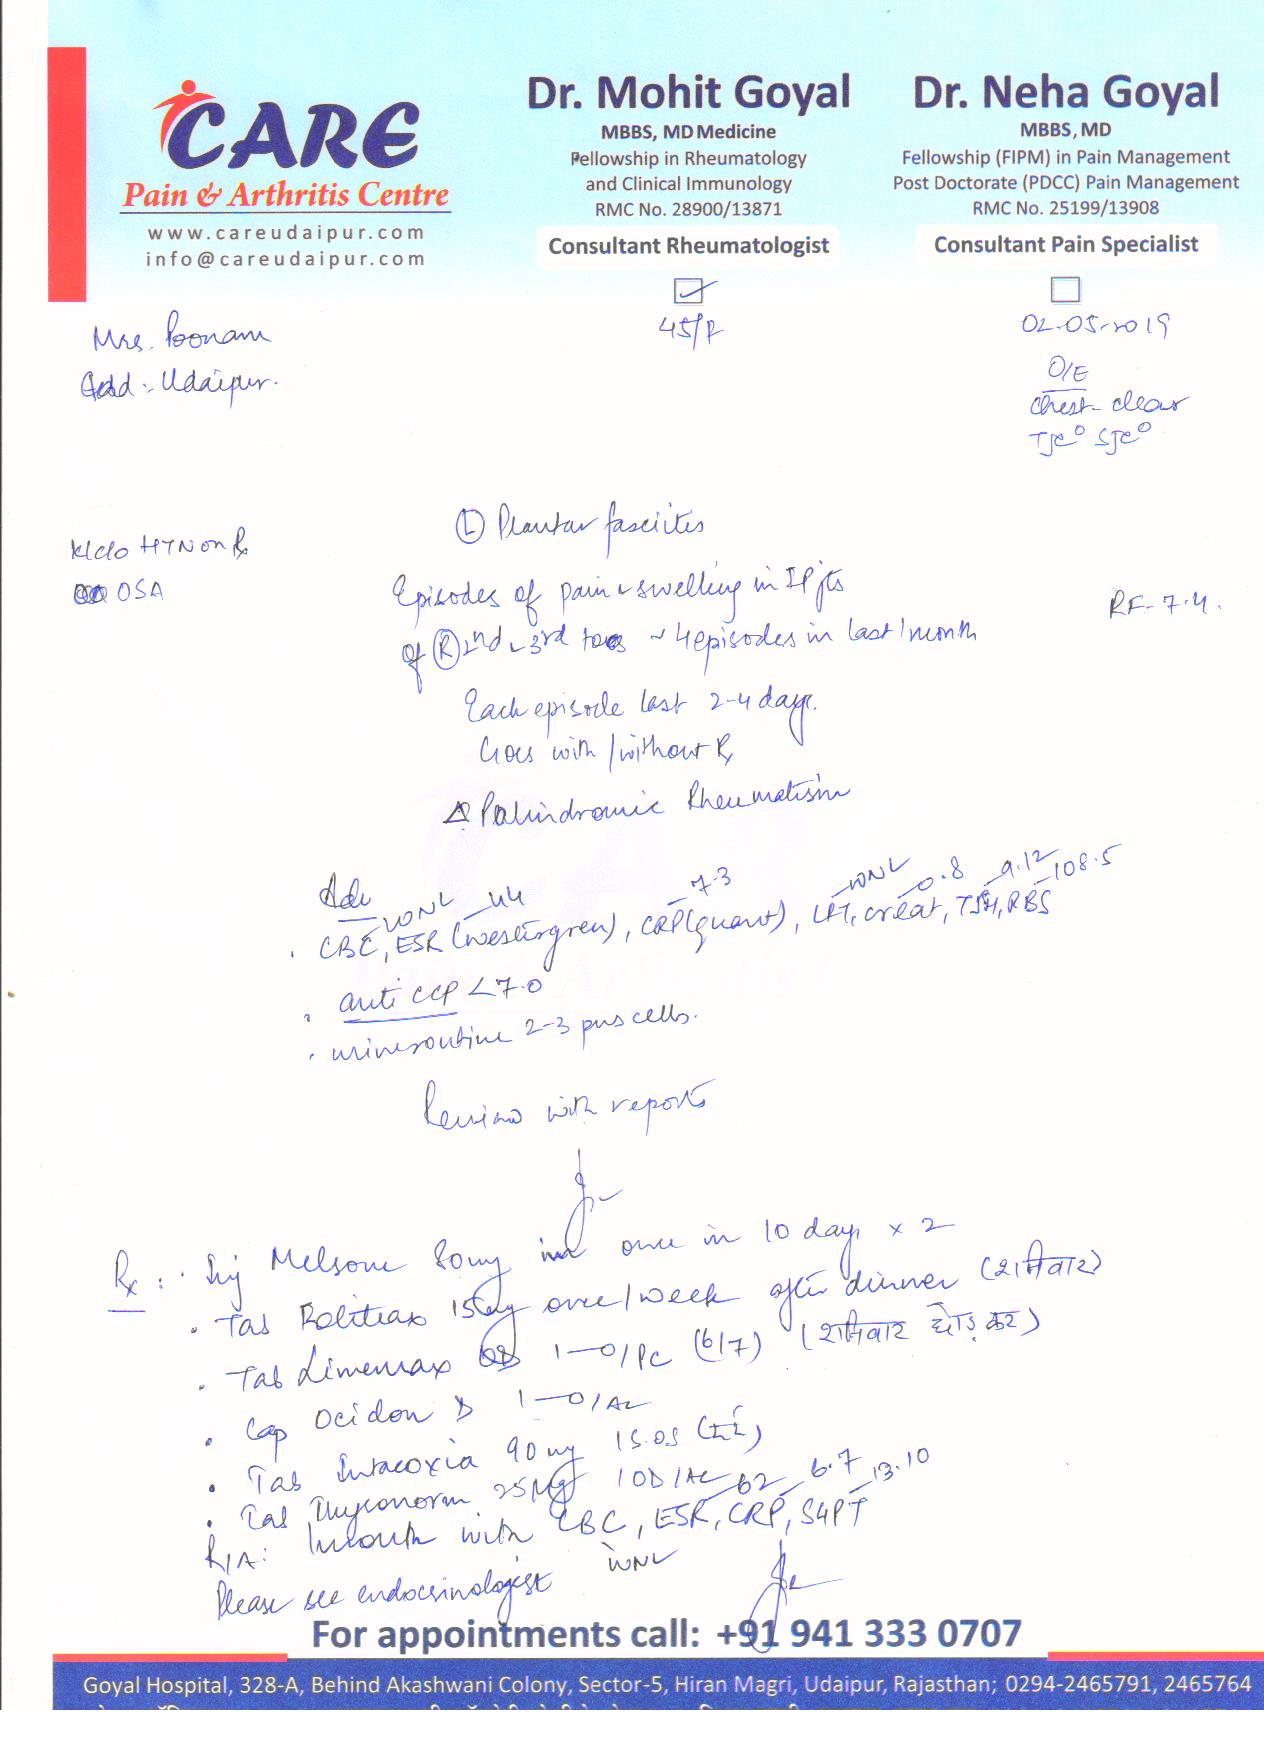 CARE
Pain & Arthritis Centre
www.careudaipur.com
info@careudaipur.com
Dr. Mohit Goyal
MBBS, MD Medicine
Fellowship in Rheumatology
and Clinical Immunology
RMC No. 28900/13871
Consultant Rheumatologist
Dr. Neha Goyal
MBBS, MD
Fellowship (FIPM) in Pain Management
Post Doctorate (PDCC) Pain Management
RMC No. 25199/13908
Consultant Pain Specialist
Mrs. Poonam
45/F
02-05-2019
Add:- Udaipur.
O/E
Chest- clear
TJC⁰ SJC⁰
K/c/o HTN on Rx
OSA
(L) Plantar fasciitis
Episodes of pain & swelling in IP jts
of (R) 2nd & 3rd toes ~ 4 episodes in last 1 month
RF- 7.4.
Each episode last 2-4 days.
Goes with/without Rx
Δ Palindromic Rheumatism
Adv
WNL 44 7.3 WNL 0.8 9.12 108.5
. CBC, ESR (westergren), CRP(quant), LFT, creat, TSH, RBS
. anti CCP <7.0
. urine routine 2-3 pus cells.
Review with reports
Rx: . Inj Melsone 80mg im once in 10 days x 2
. Tab Rolitrax 15mg once/week after dinner (शनिवार)
. Tab Limemax 1—0/PC (6/7) (शनिवार छोड़ कर)
. Cap Ocidon D 1—0/AC
. Tab Intacoxia 90mg 1S.OS (दर्द)
. Tab Thyronorm 25Mg 1OD/AC
62 6.7 13.10
R/A: 1 month with CBC, ESR, CRP, SGPT
WNL
Please see endocrinologist
For appointments call: +91 941 333 0707
Goyal Hospital, 328-A, Behind Akashwani Colony, Sector-5, Hiran Magri, Udaipur, Rajasthan; 0294-2465791, 2465764